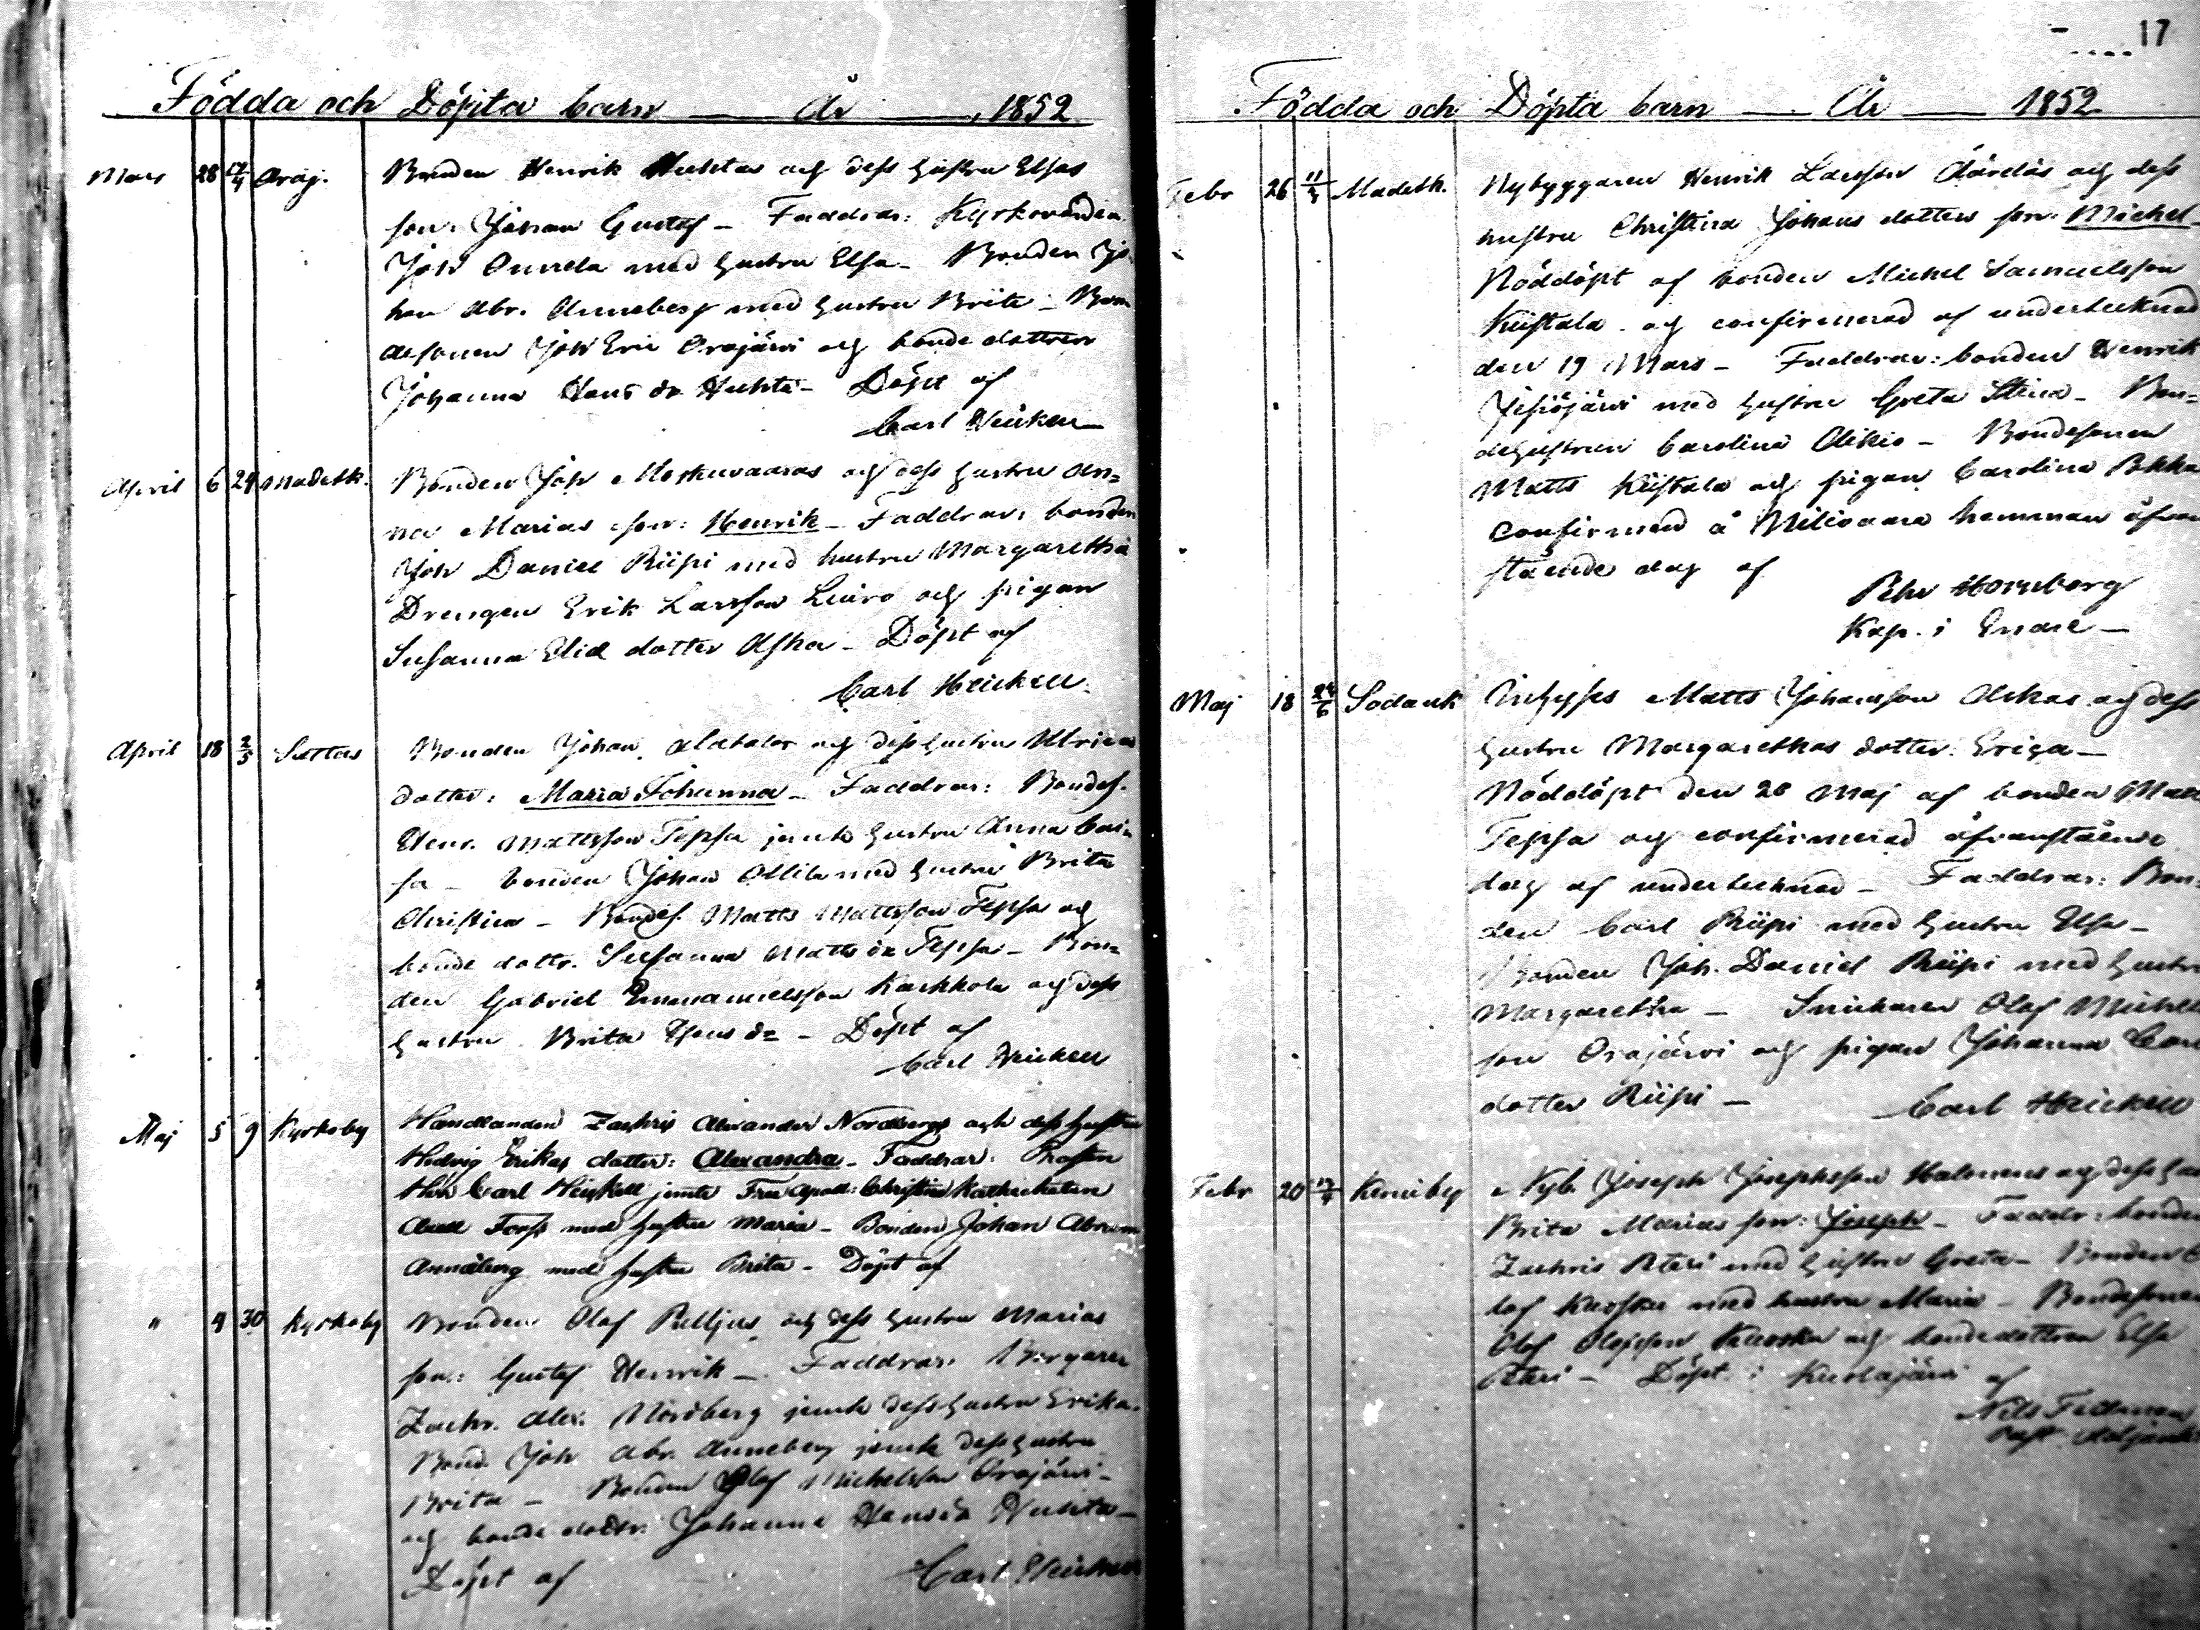 Födda och Döpta barn — År — 1852
Mars 28 12/4 Oraj. Bonden Henrik Huhtas och dess hustru Elsas
son: Johan Gustaf – Faddrar: Kyrkovärden
Joh Onnela med hustru Elsa – Bonden Jo-
han Abr. Anneberg med hustru Brita – Bon-
desonen Joh Eric Orajärvi och bonde dottren
Johanna Hans dr Huhta – Döpt af
Carl Heickell
April 6 24 Madetk. Bonden Joh Moskuvaaras och dess hustru An-
na Marias son: Henrik – Faddrar: bonden
Joh Daniel Riipi med hustru Margaretha
Drengen Erik Larsson Luiro och pigan
Susanna Elia dotter Aska – Döpt af
Carl Heickell
April 18 2/5 Sattas Bonden Johan Alatalos och dess hustru Ulricas
dotter: Maria Johanna – Faddrar: Bondes.
Henr. Mattsson Tepsa jemte hustru Anna Cai-
sa – bonden Johan Ollila med hustru Brita
Christina – Bondes. Matts Mattsson Tepsa och
bonde dottr. Susanna Matts dr Tepsa – Bon-
den Gabriel Emanuelsson Karkkola och dess
hustru Brita Hans dr – Döpt af
Carl Heickell
Maj 5 9 Kyrkoby Handlanden Zachris Alexander Nordbergs och dess hustru
Hedvig Erikas dotter: Alexandra – Faddrar: Prosten
Herr Carl Heickell jemte Fru Apoll: Christina Katheketen
Axel Torp med hustru Maria – Bonden Johan Abram
Anneberg med hustru Brita – Döpt af
" 9 30 Kyrkoby Bonden Olof Pelljus och dess hustru Marias
son: Gustaf Henrik – Faddrar: Borgaren
Zachr. Alex. Nordberg jemte dess hustru Erika.
Bond. Joh Abr. Anneberg jemte dess hustru
Brita – Bonden Olof Michelsson Orajärvi –
och bonde dottr. Johanna Hans dr Huhta –
Döpt af Carl Heickell
17
Födda och Döpta barn — År — 1852
Febr 26 11/3 Madetk. Nybyggaren Henrik Larsson och dess
hustru Christina Johans dotters son: Michel
Nöddöpt af bonden Michel Samuelsson
Kiistala och confirmerad af undertecknad
den 19 Mars – Faddrar: bonden Henrik
Jeesiöjärvi med hustru Greta Stina – Bon-
dehustrun Carolina Alikio – Bondesonen
Matts Kiistala och pigan Carolina
confirmerad å hemman ofvan
stående dag af
Pehr Hornborg
Kap. i Enare –
Maj 18 24/6 Sodank Inhyses Matts Johansson Askas och dess
hustru Margarethas dotter: Eriga –
Nöddöpt den 20 Maj af bonden Matts
Tepsa och confirmerad ofvanstående
dag af undertecknad – Faddrar: Bon-
den Carl Riipi med hustru Elsa –
Bonden Joh. Daniel Riipi med hustru
Margaretha – Snickaren Olof Michels
son Orajärvi och pigan Johanna Carls
dotter Riipi – Carl Heickell
Febr 20 Kemiby Nyb. Joseph Josephsson Halonens och dess hu
Brita Marias son: Joseph – Faddr: bonden
Zachris Peteri med hustru Greta – Bonden O
lof Kuoska med hustru Maria – Bondesonen
Olof Olofsson Kuoska och bondedottren Elsa
Peteri – Döpt i Kuolajärvi af
Nils Fellman
Past. Adjunkt